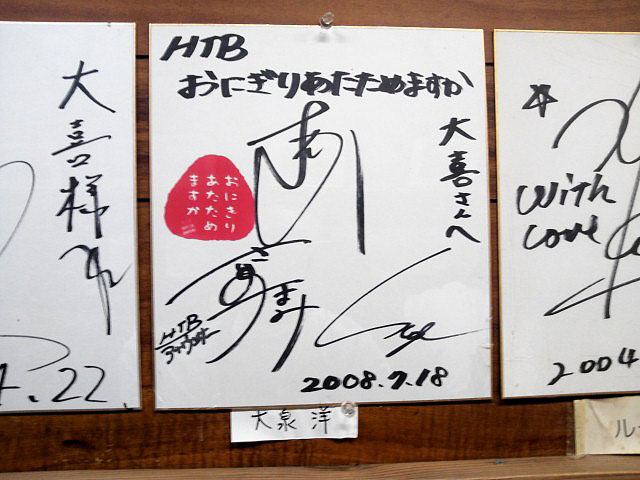 大喜様
4.22
HTB
おにぎりあたためますか
大喜さんへ
おにぎり
あたため
ますか
HTB
アナウンサー
2008.7.18
大泉 洋
with
Love
2004
ル